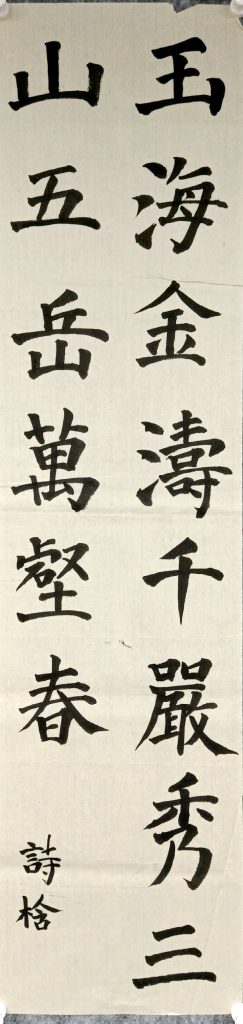 玉海金濤千嚴秀三
山五岳萬壑春
詩桧